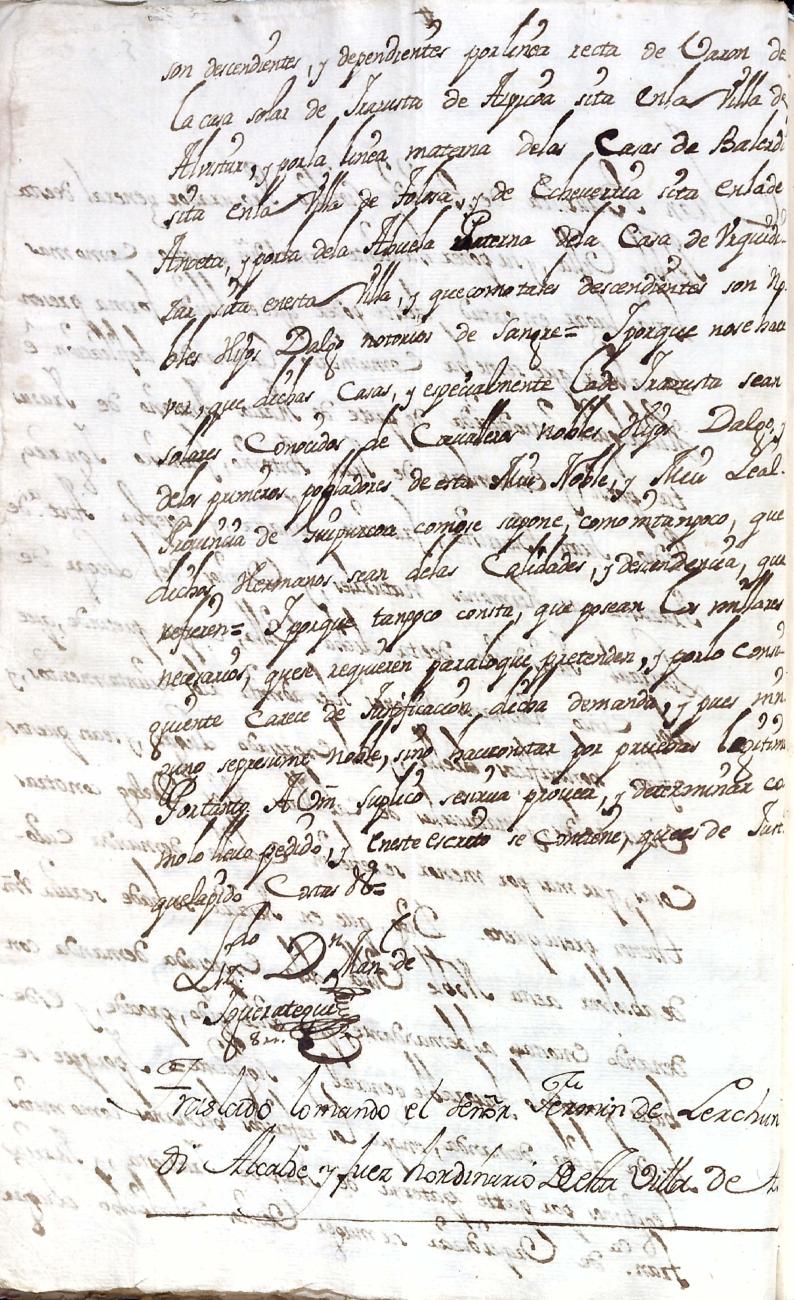 son descendientes, y dependientes por linea recta de Varon de
la casa solar de Irazusta de Azpicoa sita en la Villa de
Alvistur, y por la linea materna de las Casas de Balerdi
sita en la Villa de Tolosa, y de Echeverria sita en la de
Anoeta, y por la dela Abuela Paterna dela Casa de Vrquidi
zar sita en esta Villa, y que como tales descendientes son No
bles Hijos Dalgo notorios de Sangre= Y porque no se hace
ver, que dichas Casas, y especialmente la de Irazusta sean
solares Conocidos de Cavalleros nobles Hijos Dalgo, y
delos primeros pobladores de esta Mui Noble, y Mui Leal
Provincia de Guipuzcoa como se supone, como ni tampoco, que
dichos Hermanos sean delas Calidades, y descendencia, que
refieren= Y porque tanpoco consta, que posean los millares
necesarios, que se requieren para lo que pretenden, y por lo consi
guiente Carece de Justificacion dicha demanda, y pues nin
guno se presume noble, sino hace constar por pruebas legitim
Por tanto A Vm suplico se sirva proveer, y determinar co
mo lo llevo pedido, y en este escrito se Contiene, que es de Just.
que la pido Costas &ª=
Lizdo Dn Man. de
Yguerategui
Traslado lo mando el señor Fermin de Lerchun
di Alcalde y Juez hordinario Desta Villa de